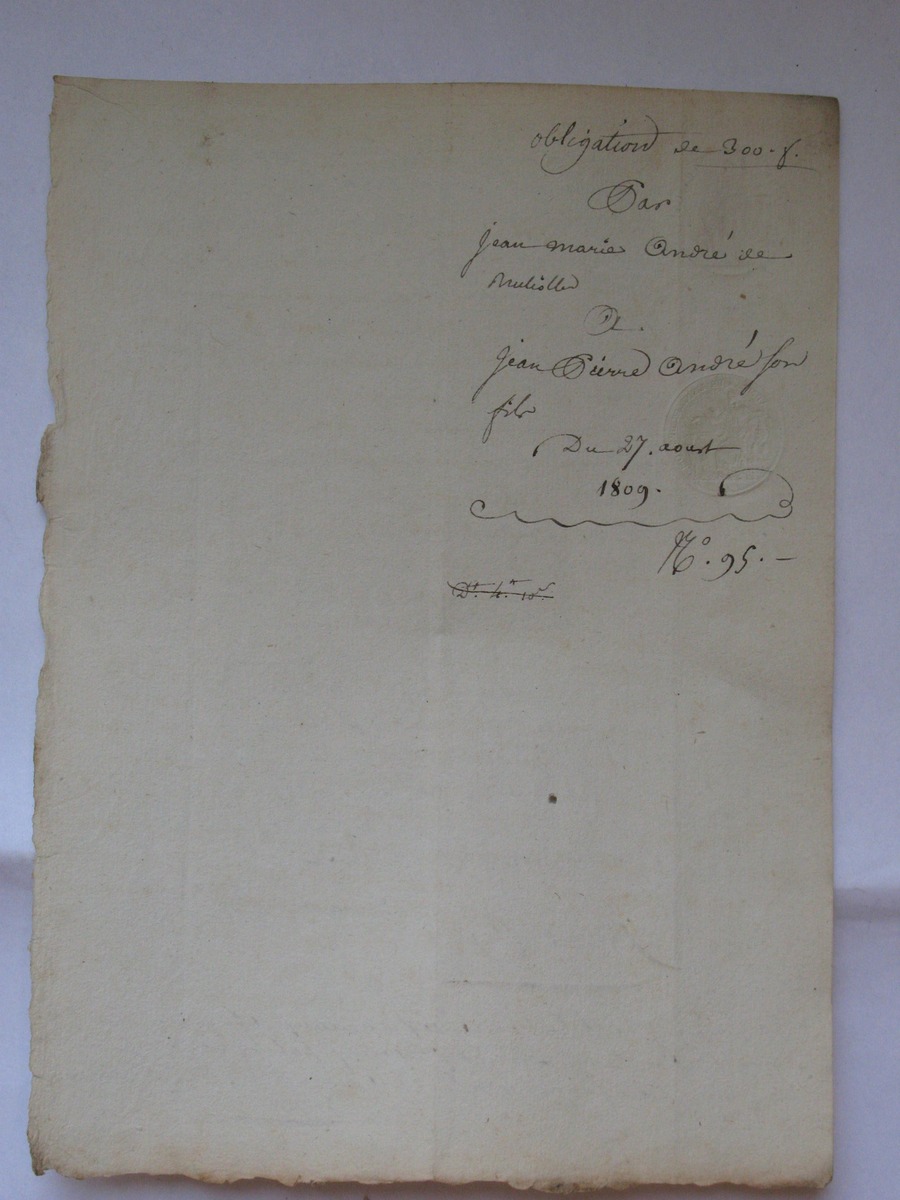 obligation de 300. f.
Par
jean marie André de
A
jean Pierre André son
fils
Du 27. aoust
1809.
N.° 95. –